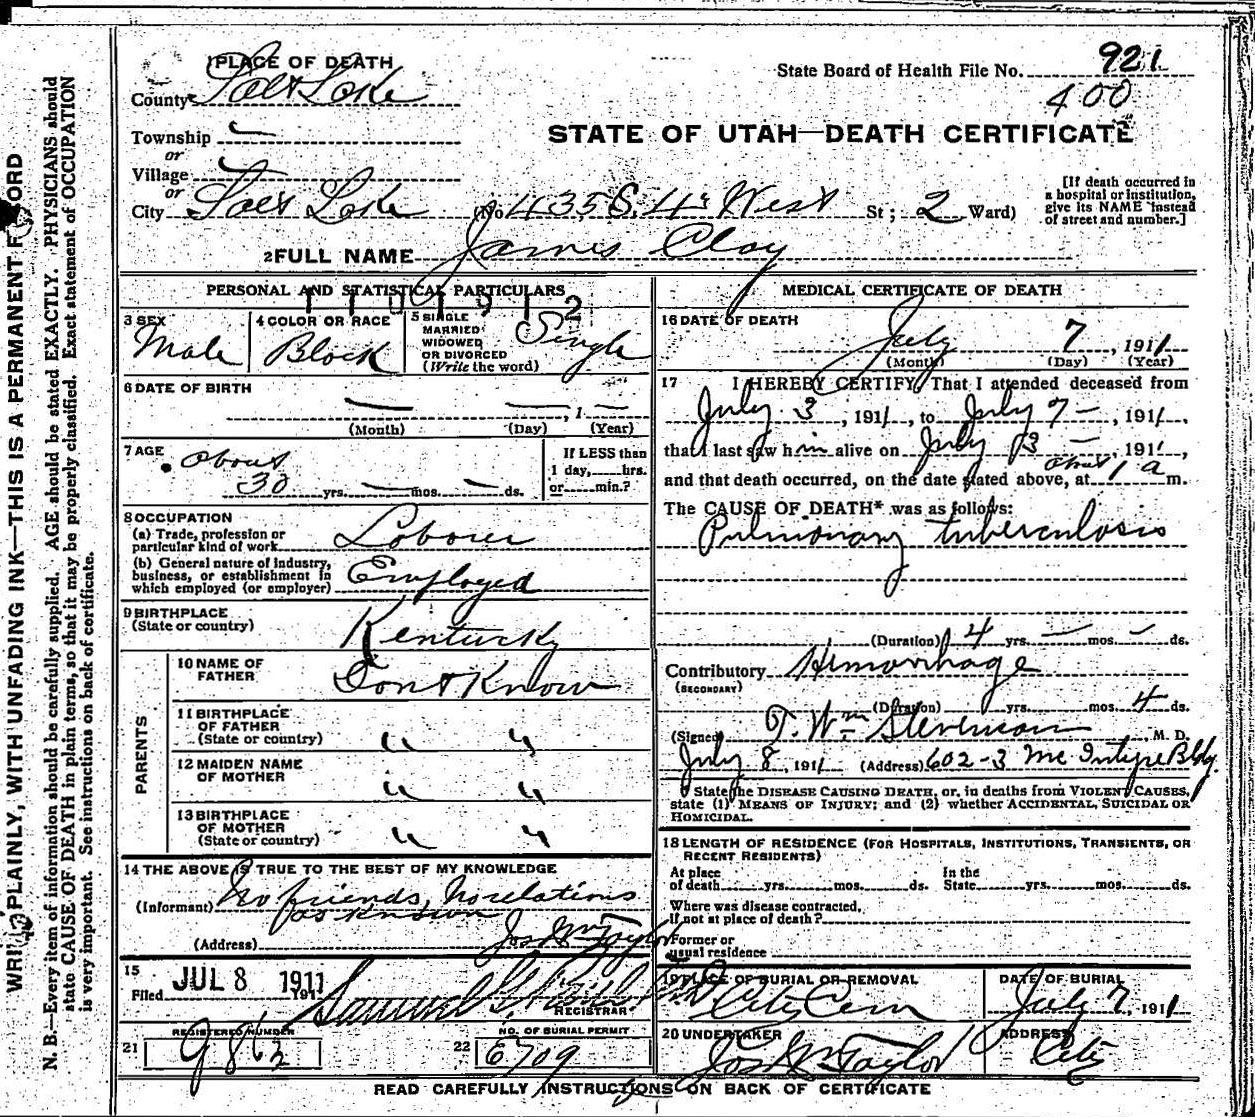 1 PLACE OF DEATH
State Board of Health File No. 921
400
County Salt Lake
STATE OF UTAH—DEATH CERTIFICATE
Township —
or
Village —
or
City Salt Lake (No 435 S. 4th West St; 2 Ward)
[If death occurred in
a hospital or institution,
give its NAME instead
of street and number.]
2 FULL NAME James Clay
PERSONAL AND STATISTICAL PARTICULARS
1101912
3 SEX Male
4 COLOR OR RACE Black
5 SINGLE
MARRIED
WIDOWED
OR DIVORCED
(Write the word) Single
6 DATE OF BIRTH
— — , 1 —
(Month) (Day) (Year)
7 AGE about
30 yrs. — mos. — ds.
If LESS than
1 day, hrs.
or min.?
8 OCCUPATION
(a) Trade, profession or
particular kind of work Laborer
(b) General nature of industry,
business, or establishment in
which employed (or employer) Employed
9 BIRTHPLACE
(State or country) Kentucky
PARENTS
10 NAME OF
FATHER Dont Know
11 BIRTHPLACE
OF FATHER
(State or country) " "
12 MAIDEN NAME
OF MOTHER " "
13 BIRTHPLACE
OF MOTHER
(State or country) " "
14 THE ABOVE IS TRUE TO THE BEST OF MY KNOWLEDGE
(Informant) No friends, No relations
as known
(Address) Jos Wm Taylor
15
Filed JUL 8 1911 191
Samuel G.
REGISTRAR
REGISTERED NUMBER
21 9862
NO. OF BURIAL PERMIT
22 6709
MEDICAL CERTIFICATE OF DEATH
16 DATE OF DEATH
July 7, 1911
(Month) (Day) (Year)
17 I HEREBY CERTIFY, That I attended deceased from
July 3, 1911, to July 7 —, 1911,
that I last saw him alive on July 3 —, 1911,
and that death occurred, on the date stated above, at about 1 a m.
The CAUSE OF DEATH* was as follows:
Pulmonary tuberculosis
(Duration) 4 yrs. — mos. — ds.
Contributory Hemorrhage
(SECONDARY)
(Duration) yrs. mos. 4 ds.
(Signed) T. Wm Stevenson, M. D.
July 8, 1911 (Address) 602-3 Mc Intyre Bldg.
State the DISEASE CAUSING DEATH, or, in deaths from VIOLENT CAUSES,
state (1) MEANS OF INJURY; and (2) whether ACCIDENTAL, SUICIDAL OR
HOMICIDAL.
18 LENGTH OF RESIDENCE (FOR HOSPITALS, INSTITUTIONS, TRANSIENTS, OR
RECENT RESIDENTS)
At place
of death yrs. mos. ds.
In the
State yrs. mos. ds.
Where was disease contracted,
If not at place of death?
Former or
usual residence
19 PLACE OF BURIAL OR REMOVAL
City Cem
DATE OF BURIAL
July 7, 1911
20 UNDERTAKER
Jos Wm Taylor
ADDRESS
City
READ CAREFULLY INSTRUCTIONS ON BACK OF CERTIFICATE
WRITE PLAINLY, WITH UNFADING INK—THIS IS A PERMANENT RECORD
N. B.—Every item of information should be carefully supplied. AGE should be stated EXACTLY. PHYSICIANS should
state CAUSE OF DEATH in plain terms, so that it may be properly classified. Exact statement of OCCUPATION
is very important. See instructions on back of certificate.